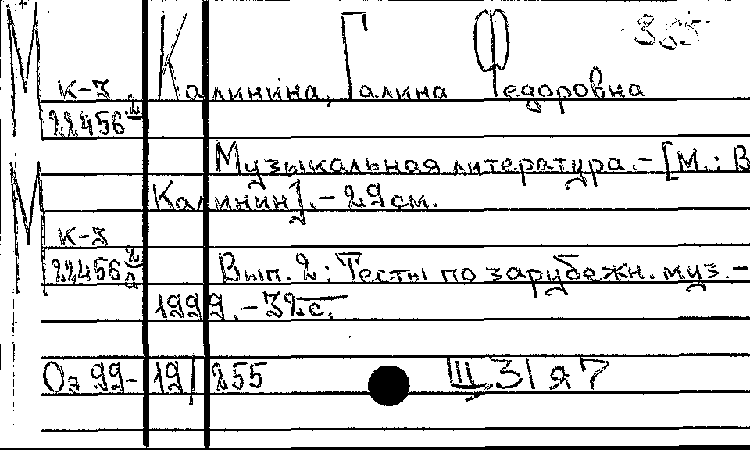 М К-3 Калинина, Галина Федоровна
22456
Музыкальная литература. - [М.: В.
Калинин]. - 29 см.
М К-3
22456 Вып. 2: Тесты по зарубежн. муз. -
1999. - 32с.
Оз 99- 19/255 Щ31я7